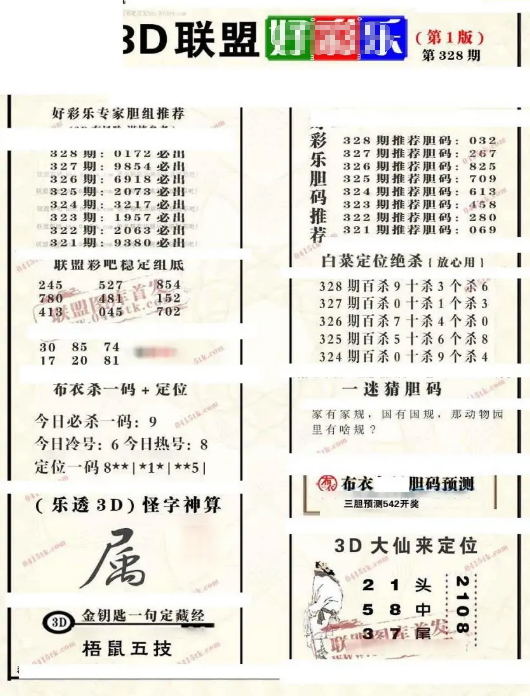 3D联盟好彩乐
(第1版)
第328期
好彩乐专家胆组推荐
328期: 0172 必出
327期: 9854 必出
326期: 6918 必出
325期: 2073 必出
324期: 3217 必出
323期: 1957 必出
322期: 2063 必出
321期: 9380 必出
联盟彩吧稳定组底
245 527 854
780 481 152
413 045 702
30 85 74
17 20 81
布衣杀一码+定位
今日必杀一码: 9
今日冷号: 6 今日热号: 8
定位一码 8**|*1*|**5|
(乐透3D)怪字神算
属
3D 金钥匙一句定藏经
梧鼠五技
彩乐胆码推荐
328期推荐胆码: 032
327期推荐胆码: 267
326期推荐胆码: 825
325期推荐胆码: 709
324期推荐胆码: 613
323期推荐胆码: 458
322期推荐胆码: 280
321期推荐胆码: 069
白菜定位绝杀{放心用}
328期百杀9十杀3个杀6
327期百杀0十杀1个杀3
326期百杀7十杀4个杀0
325期百杀5十杀6个杀8
324期百杀0十杀9个杀4
一迷猜胆码
家有家规，国有国规，那动物园
里有啥规？
布衣 胆码预测
三胆预测542开奖
3D大仙来定位
2 1 头
5 8 中
3 7 尾
2108